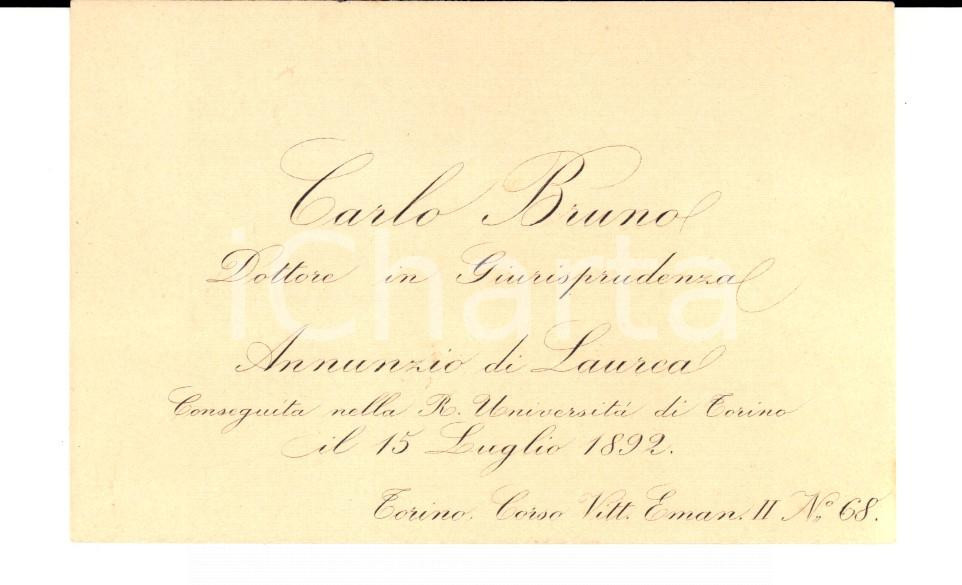 Carlo Bruno
Dottore in Giurisprudenza
iCharta
Annunzio di Laurea
Conseguita nella R. Universitá di Torino
il 15 Luglio 1892.
Torino. Corso Vitt. Eman. II N.º 68.